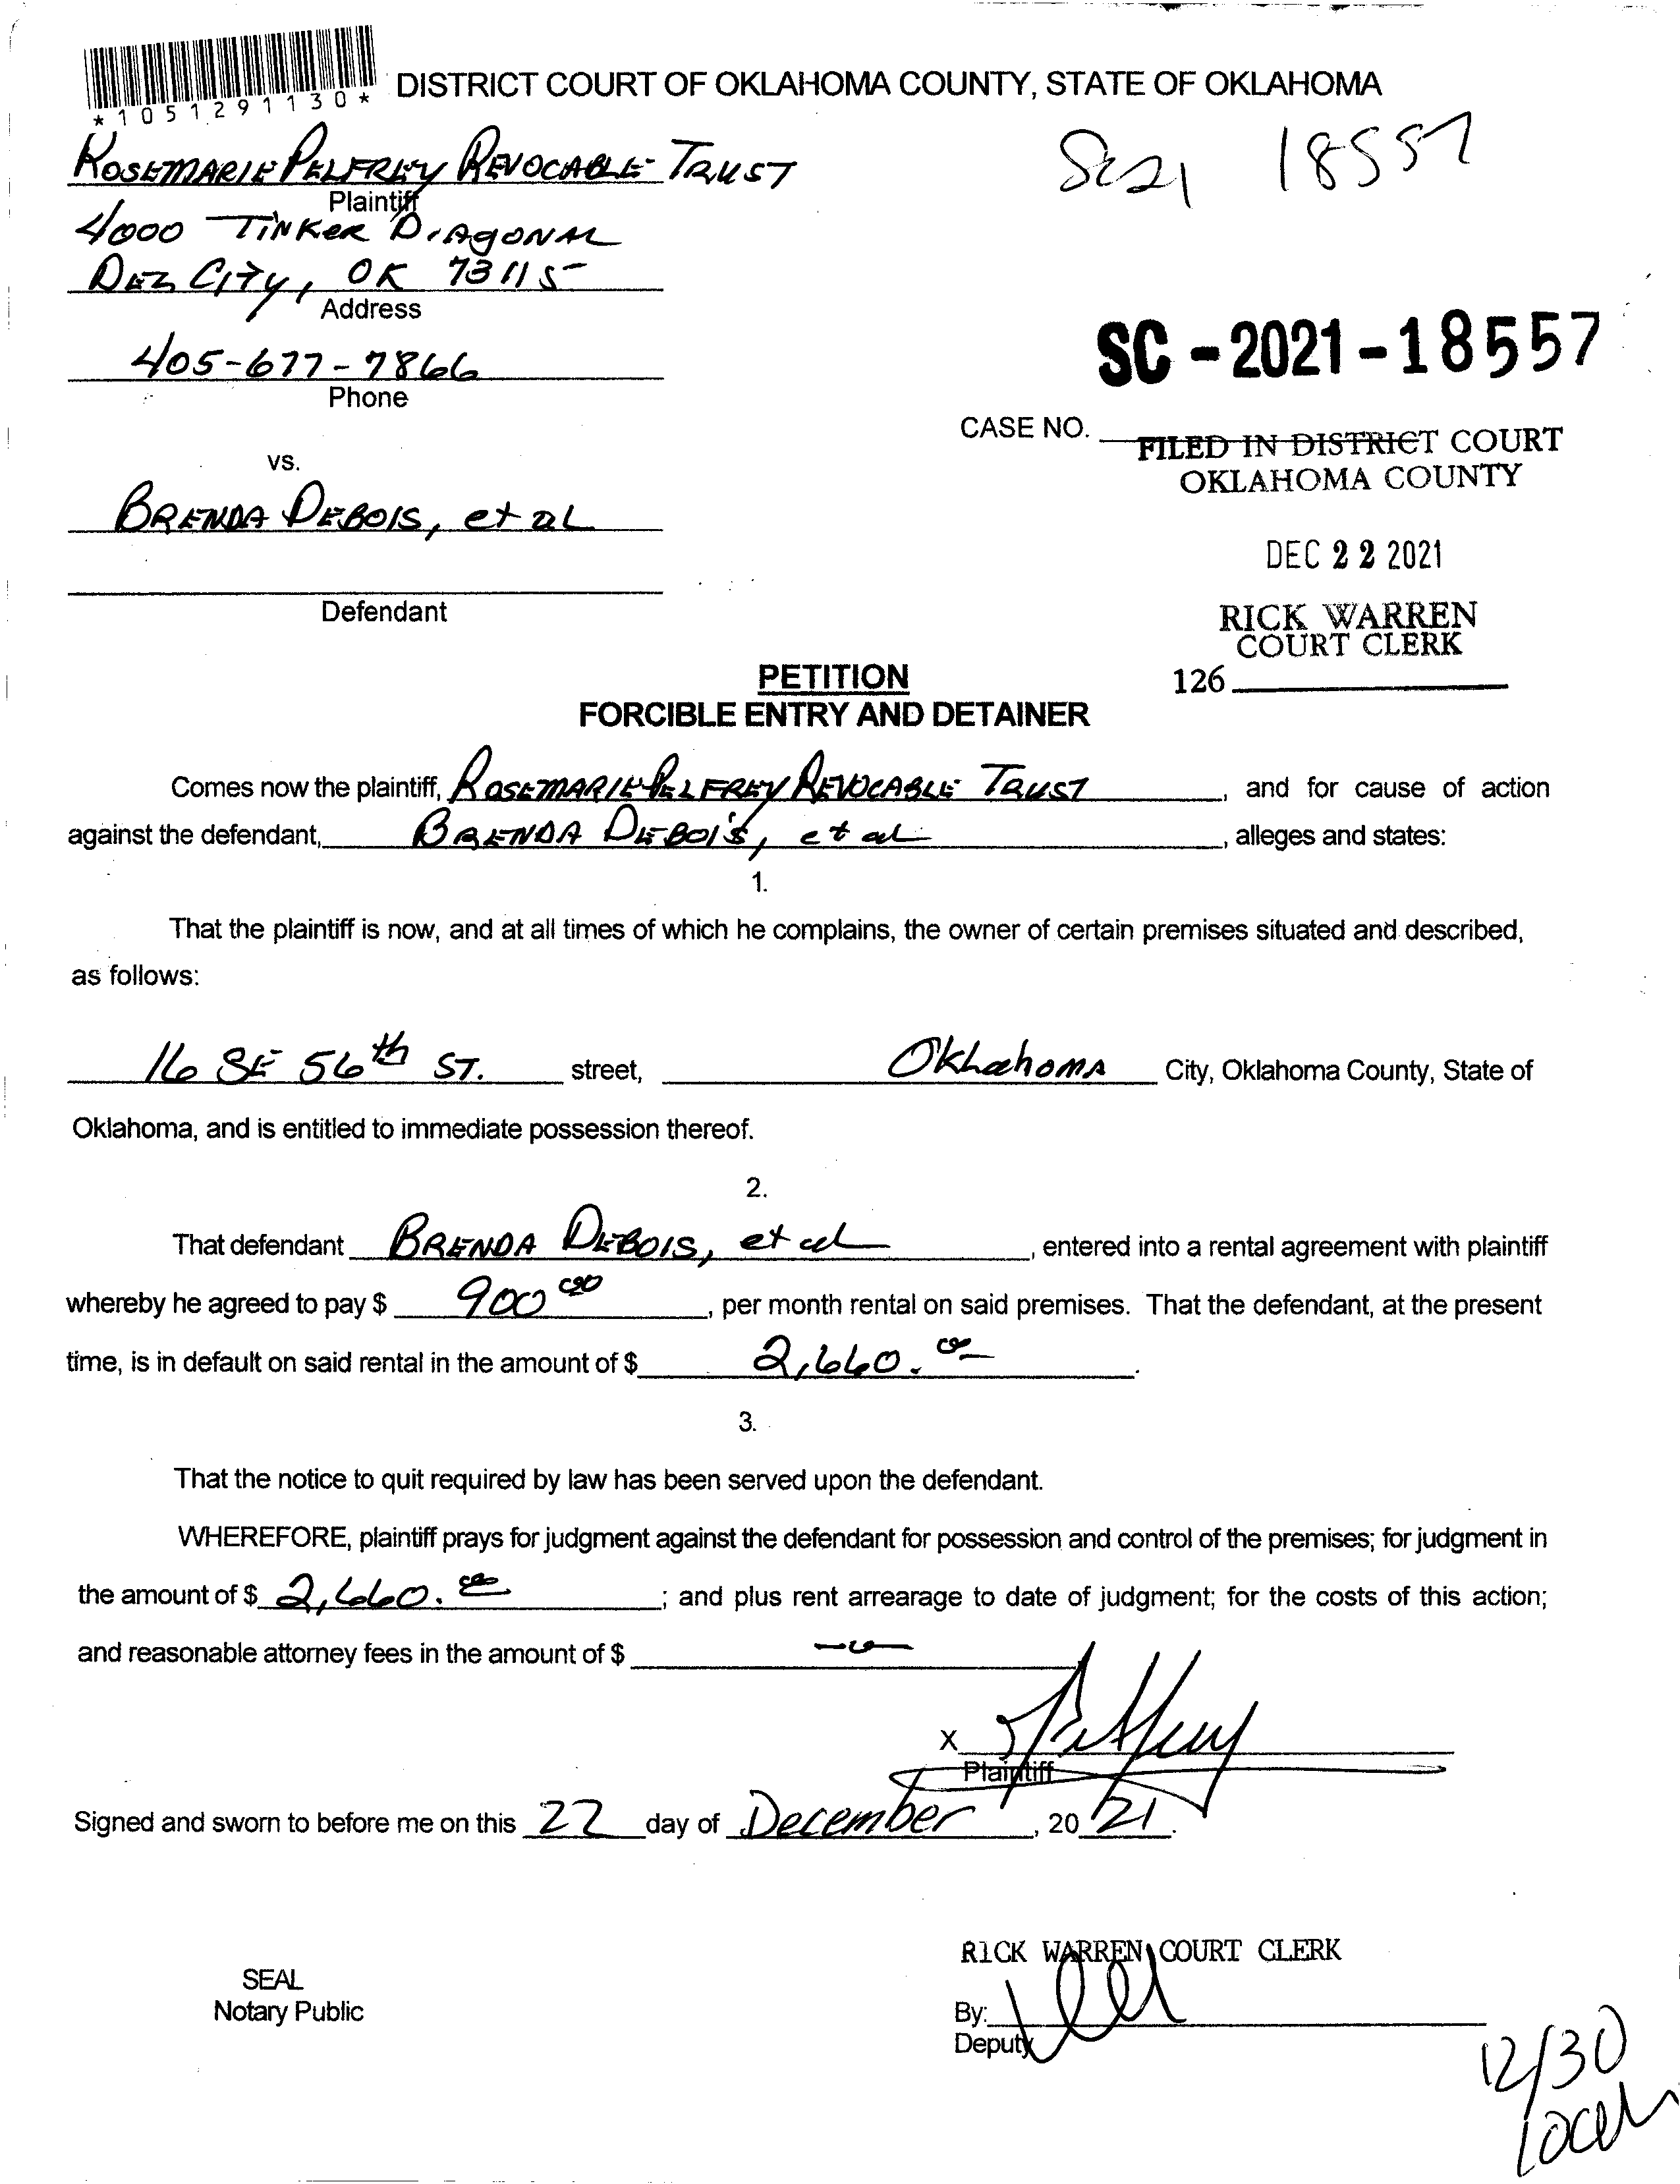 *1051291130*
DISTRICT COURT OF OKLAHOMA COUNTY, STATE OF OKLAHOMA
ROSEMARIE PELFREY REVOCABLE TRUST
Plaintiff
SC21 18557
4000 TINKER DIAGONAL
DEL CITY, OK 73115
Address
405-677-7866
Phone
SC-2021-18557
CASE NO.
FILED IN DISTRICT COURT
OKLAHOMA COUNTY
vs.
BRENDA DEBOIS, et al
DEC 22 2021
Defendant
RICK WARREN
COURT CLERK
126
PETITION
FORCIBLE ENTRY AND DETAINER
Comes now the plaintiff, ROSEMARIE PELFREY REVOCABLE TRUST, and for cause of action
against the defendant, BRENDA DEBOIS, et al, alleges and states:
1.
That the plaintiff is now, and at all times of which he complains, the owner of certain premises situated and described,
as follows:
16 SE 56th ST. street, OKLAHOMA City, Oklahoma County, State of
Oklahoma, and is entitled to immediate possession thereof.
2.
That defendant BRENDA DEBOIS, et al, entered into a rental agreement with plaintiff
whereby he agreed to pay $ 900 00, per month rental on said premises. That the defendant, at the present
time, is in default on said rental in the amount of $ 2,660. 00.
3.
That the notice to quit required by law has been served upon the defendant.
WHEREFORE, plaintiff prays for judgment against the defendant for possession and control of the premises; for judgment in
the amount of $ 2,660. 00; and plus rent arrearage to date of judgment; for the costs of this action;
and reasonable attorney fees in the amount of $
X
Plaintiff
Signed and sworn to before me on this 22 day of December, 20 21.
RICK WARREN COURT CLERK
SEAL
Notary Public
By:
Deputy
12/30